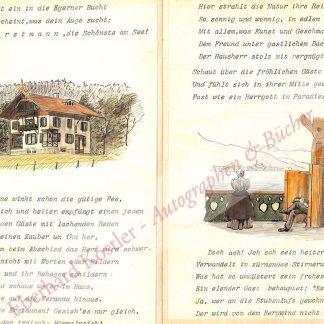 t ein in die Egerner Bucht
cheint, was dein Auge sucht:
r s t m a n n ,die Schönste am See!
ne winkt schön die gütige Fee,
ich und heiter empfängt einen jeden
den Gäste mit lachenden Reden
einen Zauber um ihn her,
beim Abschied das Herz wird schwer.
nicht mit Worten oder Bildern
und ihr Behagen schildern.
schaue im Haus,
Veranda hinaus,
staunen! Gesteh'es nur gleich,
das irdische Himmelreich!
Hier strahlt die Natur ihre Rei
So sonnig und wonnig, in edlem
Mit allem,was Kunst und Geschma
Dem Freund unter gastlichen Dac
Der Hausherr stolz mit vergnügt
Schaut über die fröhlichen Gäste
Und fühlt sich in ihrer Mitte gew
Fast wie ein Herrgott in Paradies
Doch ach! Ich sah sein heiter
Verwandelt in zürnendes Stirnerun
Was hat so umdüstert sein frohes
Ein elender Gast behauptet;"Es
Ja, wer an die Stubenluft gewohn
Der wird vom Bergwind nicht
Eberhard Köstler - Autographen & Bücher